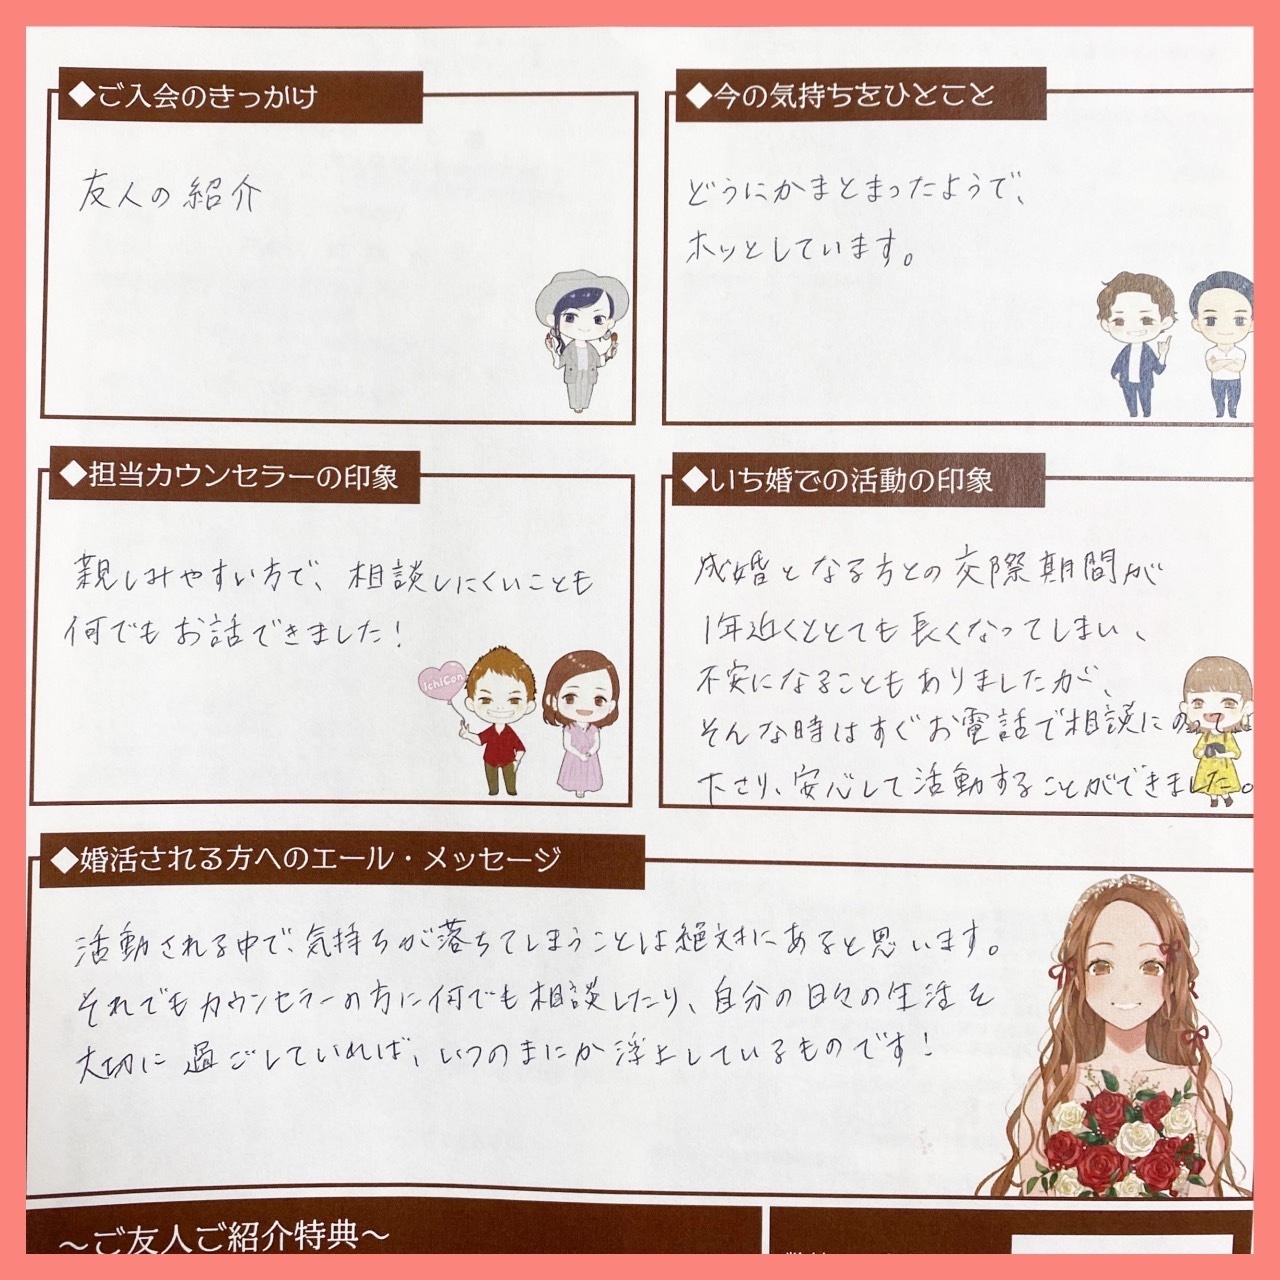 ◆ご入会のきっかけ
友人の紹介
◆今の気持ちをひとこと
どうにかまとまったようで、
ホッとしています。
◆担当カウンセラーの印象
親しみやすい方で、相談しにくいことも
何でもお話できました！
IchiCon
◆いち婚での活動の印象
成婚となる方との交際期間が
1年近くととても長くなってしまい、
不安になることもありましたが、
そんな時はすぐお電話で相談にのって
下さり、安心して活動することができました。
◆婚活される方へのエール・メッセージ
活動される中で、気持ちが落ちてしまうことは絶対にあると思います。
それでもカウンセラーの方に何でも相談したり、自分の日々の生活を
大切に過ごしていれば、いつのまにか浮上しているものです！
～ご友人ご紹介特典～